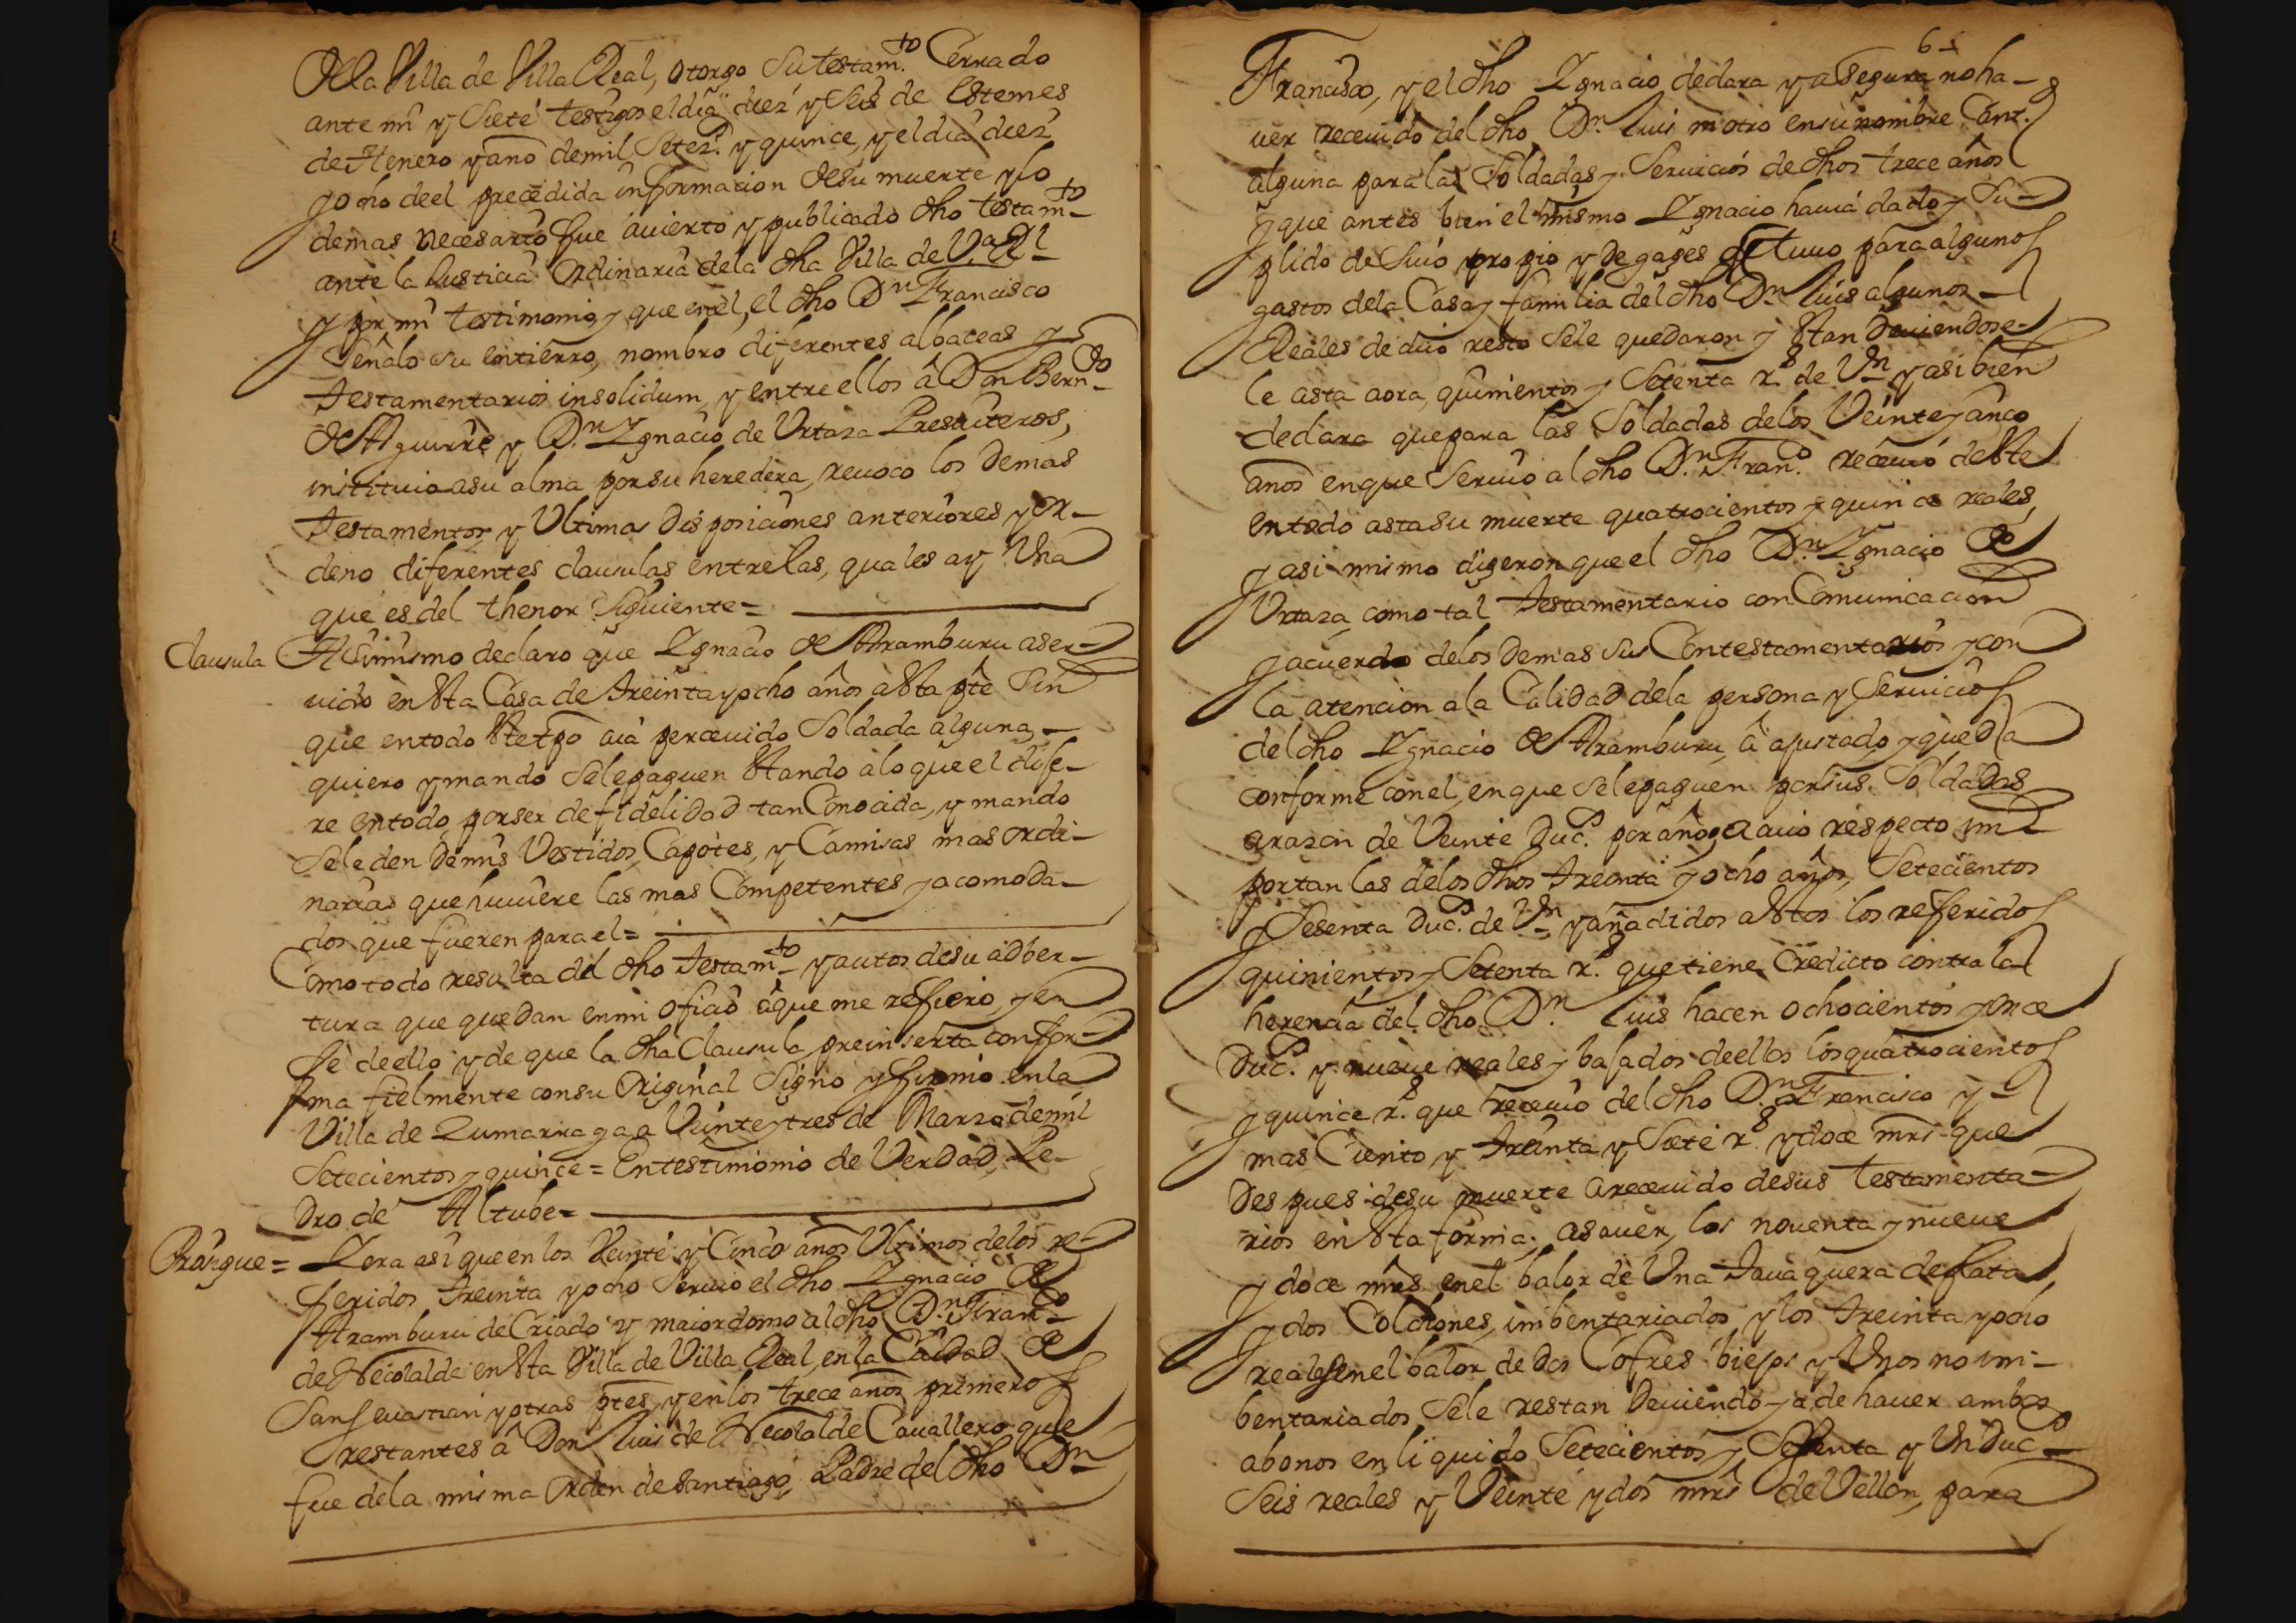 de la Villa de Villa Real, otorgo su testam.to Cerrado
ante mi y Siete testigos el dia diez y Seis de Estemes
de Henero y año de mil Setez.s y quince, y el dia diez
y ocho de el precedida informacion de su muerte y lo
demas necesario fue avierto y publicado dho testam.to
ante la Justicia Ordinaria de la dha Villa de V.a Rl
y por mi testimonio, y que en el, el dho Dn Francisco
Señalo su entierro, nombro diferentes albaceas y
testamentarios insolidum, y entre ellos â Don Bern.do
de Aguirre y D.n Ygnacio de Urtaza Presviteros,
instituio a su alma por su heredera, revoco los demas
testamentos y Ultimas disposiciones anteriores y or-
deno diferentes clausulas entre las, quales ay Una
que es del thenor Siguiente =
Clausula Asimismo declaro que Ygnacio de Aramburu a ser-
uido en Esta Casa de treinta y ocho años a Esta pte Sin
que en todo Este tpo aia perceuido Soldada alguna,
quiero y mando Se le paguen Estando a lo que el dife-
re en todo, por ser de fidelidad tan Conocida, y mando
Se le den de mis Vestidos, Capotes, y Camisas mas ordi-
narias que huuiere las mas Competentes y acomoda-
dos que fueren para el =
Como todo resulta del dho testam.to y autos de su adber-
tura que quedan en mi oficio âque me refiero, y en
fe de ello y de que la dha Clausula preinserta confor-
ma fielmente con su Original Signo y firmo en la
Villa de Zumarraga a Veinte y tres de Marzo de mil
Setecientos y quince = En testimonio de Verdad, Pe-
dro de Altube =
Prosigue = Y era asi que en los Veinte y Cinco años Ultimos de los re-
feridos treinta y ocho Seruio el dho Ygnacio de
Aramburu de Criado y maiordomo al dho D.n Fran.co
de Necolalde en Esta Villa de Villa Real, en la Ciudad de
San Seuastian y otras ptes, y en los trece años primeros
restantes â Don Luis de Necolalde Cauallero que
fue de la misma orden de Santiago, Padre del dho Dn
6
Francisco, y el dho Ygnacio declara y asegura no ha-
uer receuido del dho D.n Luis ni otro en su nombre Cant.
alguna para las Soldadas y Seruicios de dhos trece años
y que antes bien el mismo Ygnacio hauia dado y Su-
plido de Suio propio y de gages q tuuo para algunos
gastos de la Casa y familia del dho Dn Luis algunos
Reales de cuio resto Se le quedaron y Estan deuiendose-
le asta aora, quinientos y Setenta r.s de Vn y asi bien
declara que para las Soldadas de los Veinte y cinco
años en que Seruio al dho D.n Fran.co receuio de Este
en todo asta su muerte quatrocientos y quince reales,
y asi mismo digeron que el dho D.n Ygnacio de
Urtaza, como tal testamentario con Comunicacion
y acuerdo de los demas sus Contestamentarios y con
la atencion a la Calidad de la persona y Seruicios
del dho Ygnacio de Aramburu, â ajustado y queda
conforme con el, en que Se le paguen por sus Soldadas
a razon de Veinte Duc.s por año, a cuio respecto im-
portan las de los dhos treinta y ocho años, Setecientos
y Sesenta Duc.s de Vn y añadidos a Estos los referidos
quinientos y Setenta r.s que tiene Credicto contra la
herencia del dho D.n Luis hacen ochocientos y once
Duc.s y nueue reales y bajados de ellos los quatrocientos
y quince r.s que receuio del dho D.n Francisco y
mas Ciento y treinta y Siete r.s y doce mrs que
despues de su muerte a receuido de sus testamenta-
rios en Esta forma; a sauer, los nouenta y nueue
y doce mrs en el balor de Una de Plata,
y dos Colchones imbentariados y los treinta y ocho
reales en el balor de dos Cofres biejos y Unos no im-
bentariados Se le restan deuiendo y a de hauer ambos
abonos en liquido Setecientos y Sesenta y Un Duc.s
Seis reales y Veinte y dos mrs de Vellon, para